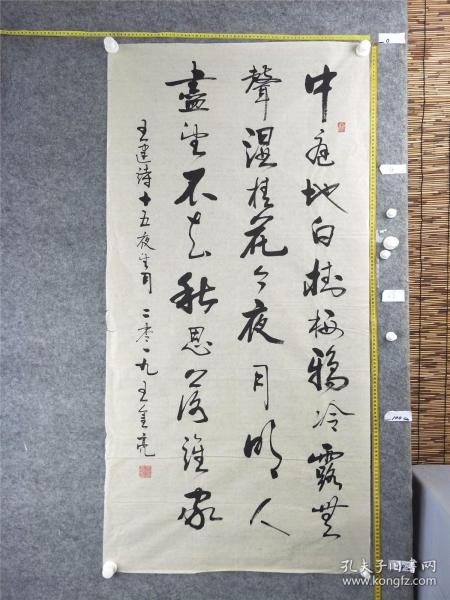 中庭地白樹棲鴉冷露無
聲濕桂花今夜月明人
盡望不知秋思落誰家
王建诗十五夜望月 二零一九王金亮
0
孔夫子旧书网
www.kongfz.com